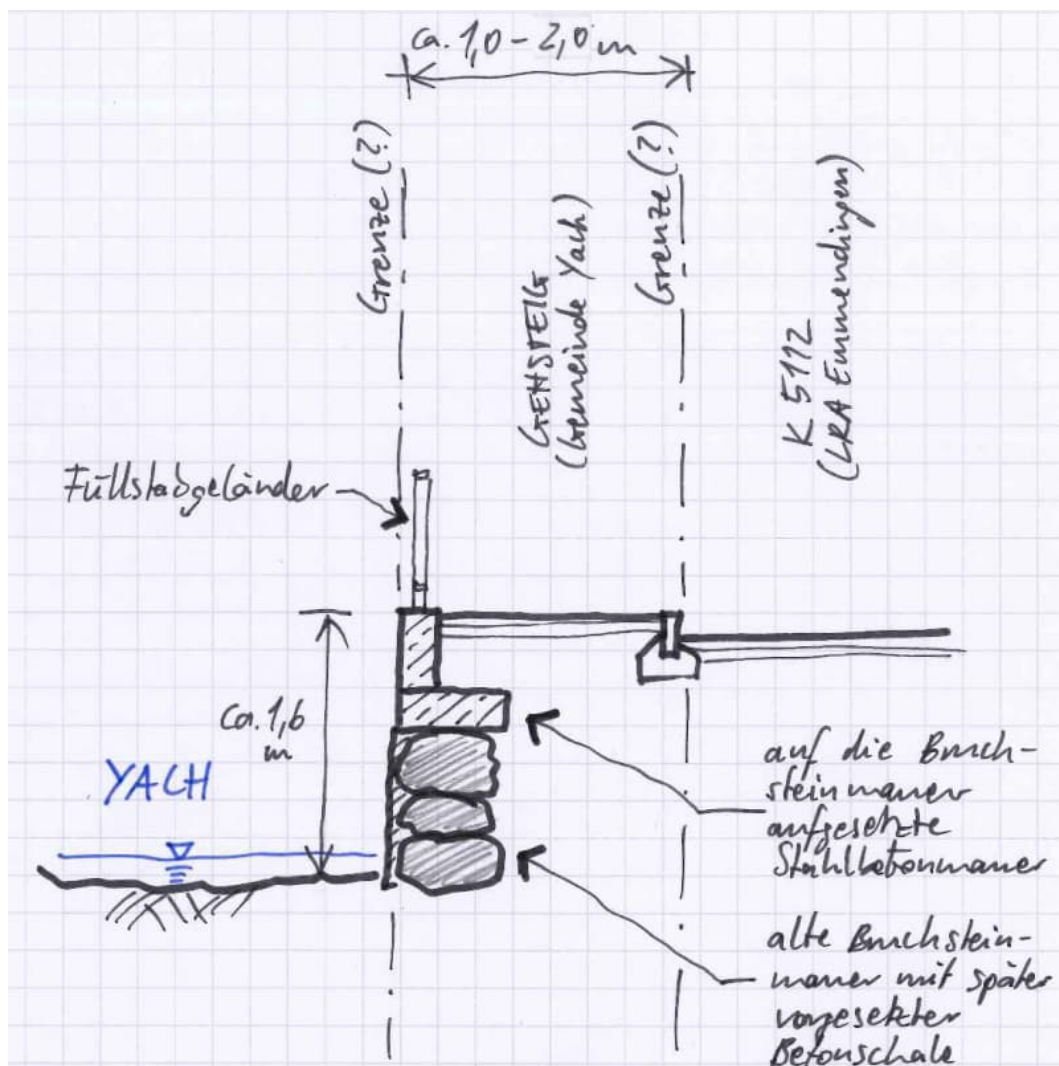 ca. 1,0 - 2,0 m
Grenze (?)
GEHSTEIG
(Gemeinde Yach)
Grenze (?)
K 5112
(LRA Emmendingen)
Füllstabgeländer
ca. 1,6
m
YACH
auf die Bruch-
steinmauer
aufgesetzte
Stahlbetonmauer
alte Bruchstein-
mauer mit später
vorgesetzter
Betonschale